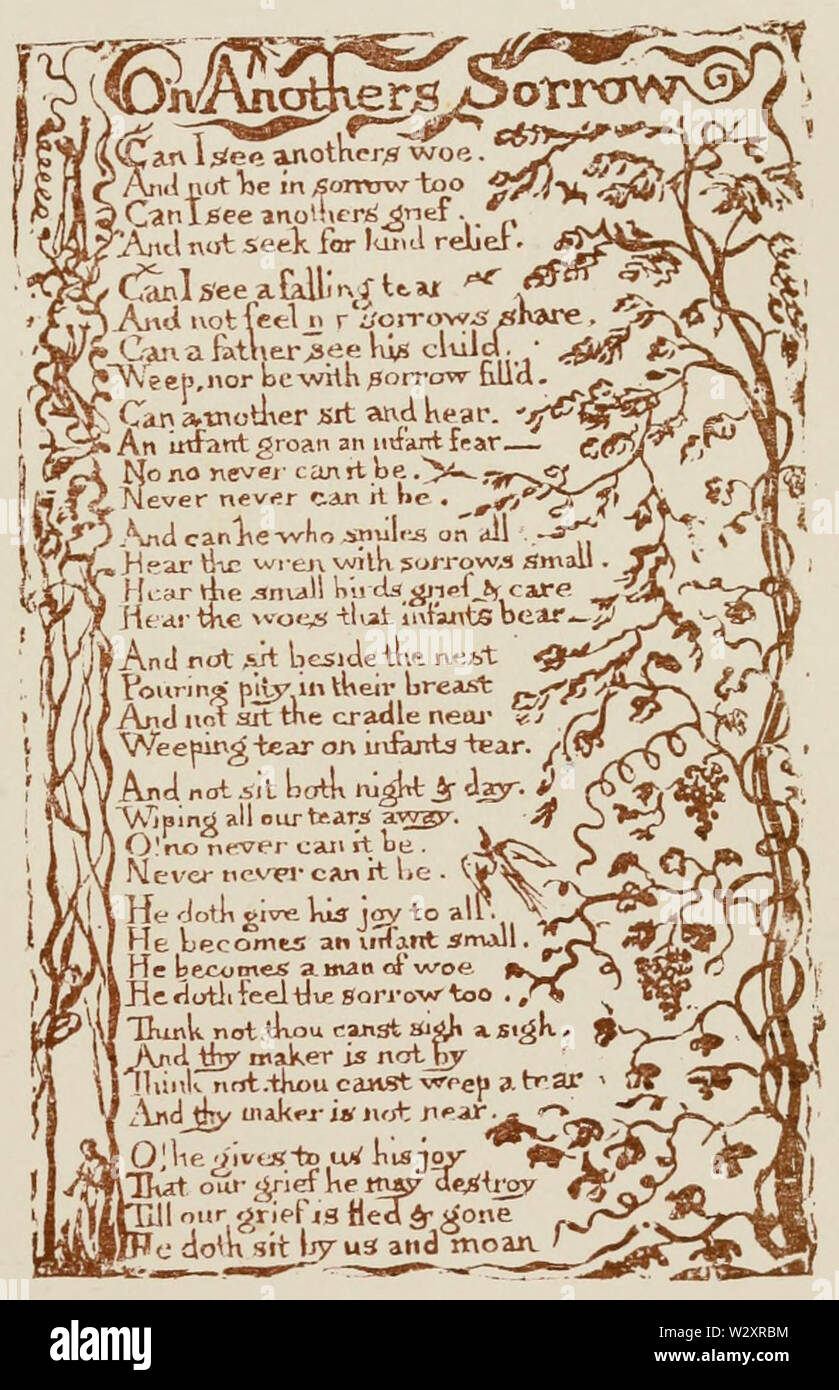 On Anothers Sorrow
Can I see anothers woe.
And not be in sorrow too
Can I see anothers grief.
And not seek for kind relief.
Can I see a falling tear
And not feel sorrows share,
Can a father see his child,
Weep, nor be with sorrow fill'd.
Can a mother sit and hear.
An infant groan an infant fear—
No no never can it be.
Never never can it be.
And can he who smiles on all
Hear the wren with sorrows small.
Hear the small birds grief & care
Hear the woes that infants bear—
And not sit beside the nest
Pouring pity in their breast
And not sit the cradle near
Weeping tear on infants tear.
And not sit both night & day.
Wiping all our tears away.
O! no never can it be.
Never never can it be.
He doth give his joy to all.
He becomes an infant small.
He becomes a man of woe
He doth feel the sorrow too.
Think not thou canst sigh a sigh.
And thy maker is not by
Think not thou canst weep a tear
And thy maker is not near.
O! he gives to us his joy
That our grief he may destroy
Till our grief is fled & gone
He doth sit by us and moan
alamy
Image ID: W2XRBM
www.alamy.com